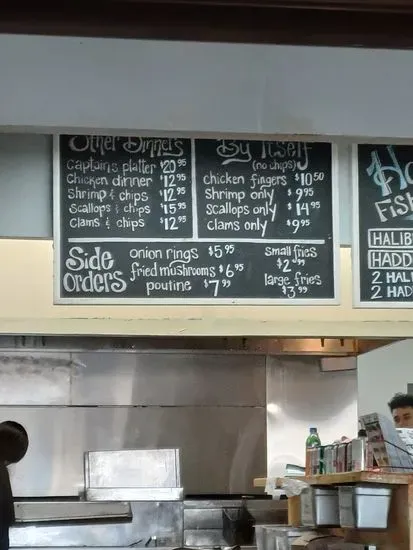 Other Dinners
Captains platter $20.95
Chicken dinner $12.95
Shrimp & chips $12.95
Scallops & chips $15.95
Clams & chips $12.95
By Itself
(no chips)
chicken fingers $10.50
Shrimp only $9.95
Scallops only $14.95
clams only $9.95
Side Orders
onion rings $5.95
fried mushrooms $6.95
poutine $7.99
small fries
$2.99
large fries
$3.99
FIS
HALIB
HADD
2 HAL
2 HAD